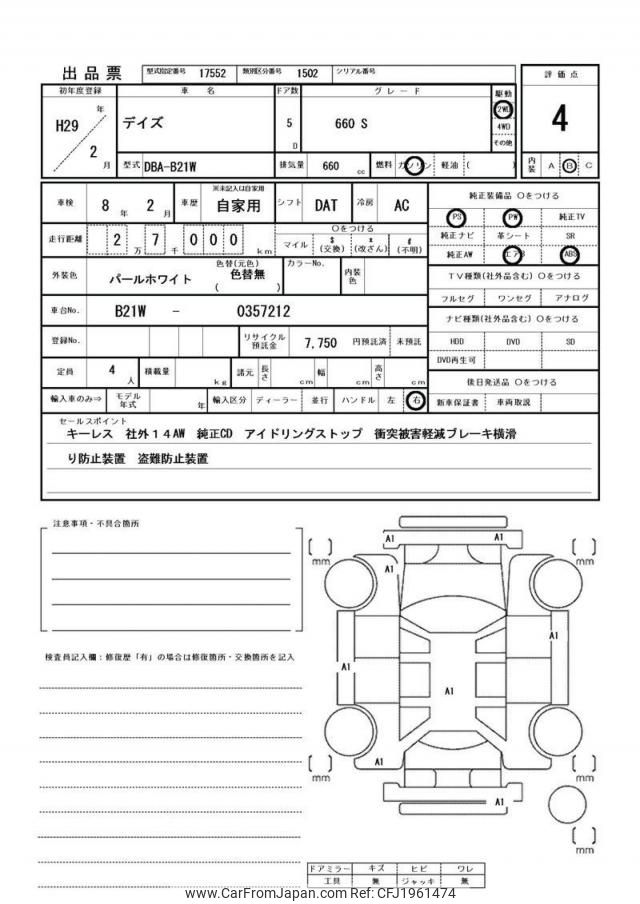 出品票 型式指定番号 17552 類別区分番号 1502 シリアル番号
評価点
4
内装 A B C
初年度登録 車名 ドア数 グレード 駆動
H29 年 / 2 月
デイズ 5 D 660 S
2WD
4WD
その他
型式 DBA-B21W 排気量 660 cc 燃料 ガソリン 軽油 ( )
車検 8 年 2 月 車歴 ※未記入は自家用 自家用 シフト DAT 冷房 AC
走行距離 2 万 7 千 0 0 0 km
○をつける
マイル $ (交換) * (改ざん) # (不明)
外装色 パールホワイト 色替(元色) 色替無 ( ) カラーNo. 内装色
車台No. B21W - 0357212
登録No. リサイクル預託金 7,750 円預託済 未預託
定員 4 人 積載量 kg 諸元 長さ cm 幅 cm 高さ cm
輸入車のみ⇒ モデル年式 年 輸入区分 ディーラー 並行 ハンドル 左 右
純正装備品 ○をつける
PS PW 純正TV
純正ナビ 革シート SR
純正AW エアB ABS
TV種類(社外品含む) ○をつける
フルセグ ワンセグ アナログ
ナビ種類(社外品含む) ○をつける
HDD DVD SD
DVD再生可
後日発送品 ○をつける
新車保証書 車両取説
セールスポイント
キーレス 社外14AW 純正CD アイドリングストップ 衝突被害軽減ブレーキ横滑
り防止装置 盗難防止装置
注意事項・不具合箇所
検査員記入欄:修復歴「有」の場合は修復箇所・交換箇所を記入
A1 A1
mm mm
A1
A1
A1
A1
A1
mm mm
A1
mm
ドアミラー キズ ヒビ ワレ
工具 無 ジャッキ 無
www.CarFromJapan.com Ref: CFJ1961474